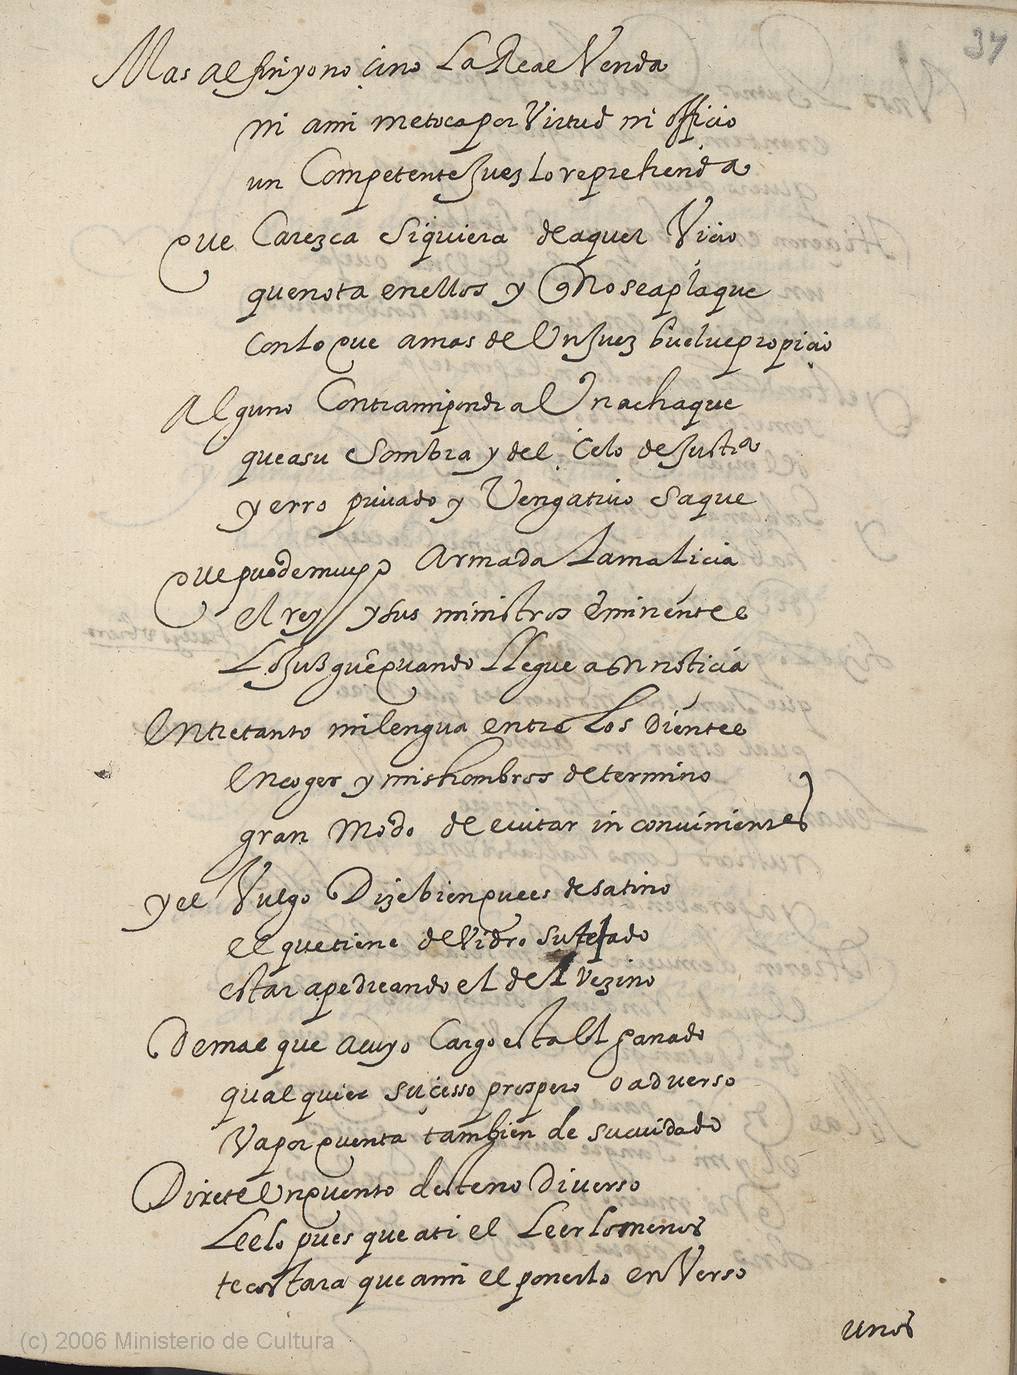 37
Mas al fin yo no çino La Real Venda
ni ami metoca por Virtud ni officio
un Competente Juez lo reprehenda
que Carezca siquiera de aquel Vicio
que nota en ellos y no se aplaque
con lo que amas de Un Juez buelue propicio
Alguno Contra mi pondra Un achaque
que a su sombra y del Celo de Justia
yerro priuado y Vengatiuo saque
que puede muy Armada La malicia
el rey y sus ministros eminentes
Lo Juzguē quando LLegue a su noticia
Entretanto mi lengua entre Los Dientes
encoger y mis hombros determino
gran modo de euitar inconuinientes
y el Vulgo Dize bien que es desatino
el que tiene de Vidro su tejado
estar apedreando el del Vezino
Demas que a cuyo Cargo esta el ganado
qualquier suçesso prospero o aduerso
Va por quenta tambien de su cuidado
Direte Un quento deste no Diuerso
Leelo pues que a ti el Leerlo menos
te costara que ami el ponerlo en Verso
unos
(c) 2006 Ministerio de Cultura